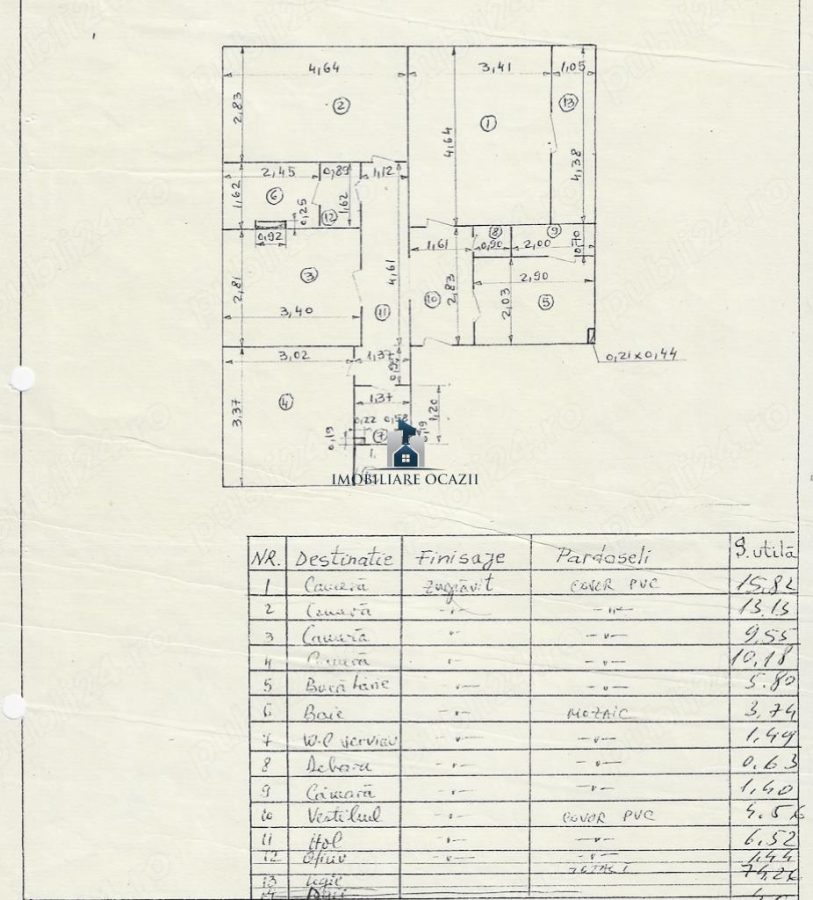 4,64
3,41
1,05
2,83
2
1
13
4,64
4,38
2,45
0,89
1,12
1,62
6
0,25
1,62
12
0,92
8
9
1,61
0,90
2,00
0,70
4,61
2,81
3
3,40
11
10
2,83
2,90
2,03
5
0,21 x 0,44
3,02
1,37
3,37
4
1,37
1,20
0,22
0,19
7
IMOBILIARE OCAZII
NR. Destinatie Finisaje Pardoseli S.utilă
1 Cameră zugrăvit COVOR PVC 15,82
2 Cameră -"- -"- 13.13
3 Cameră -"- -"- 9,55
4 Cameră -"- -"- 10,18
5 Bucătărie -"- -"- 5.80
6 Baie -"- MOZAIC 3,74
7 W.C serviciu -"- -"- 1,49
8 Debara -"- -"- 0.63
9 Cămară -"- -"- 1,40
10 Vestibul -"- COVOR PVC 4.56
11 Hol -"- -"- 6,52
12 Oficiu -"- -"- 1,44
74,26
13 Logie
14